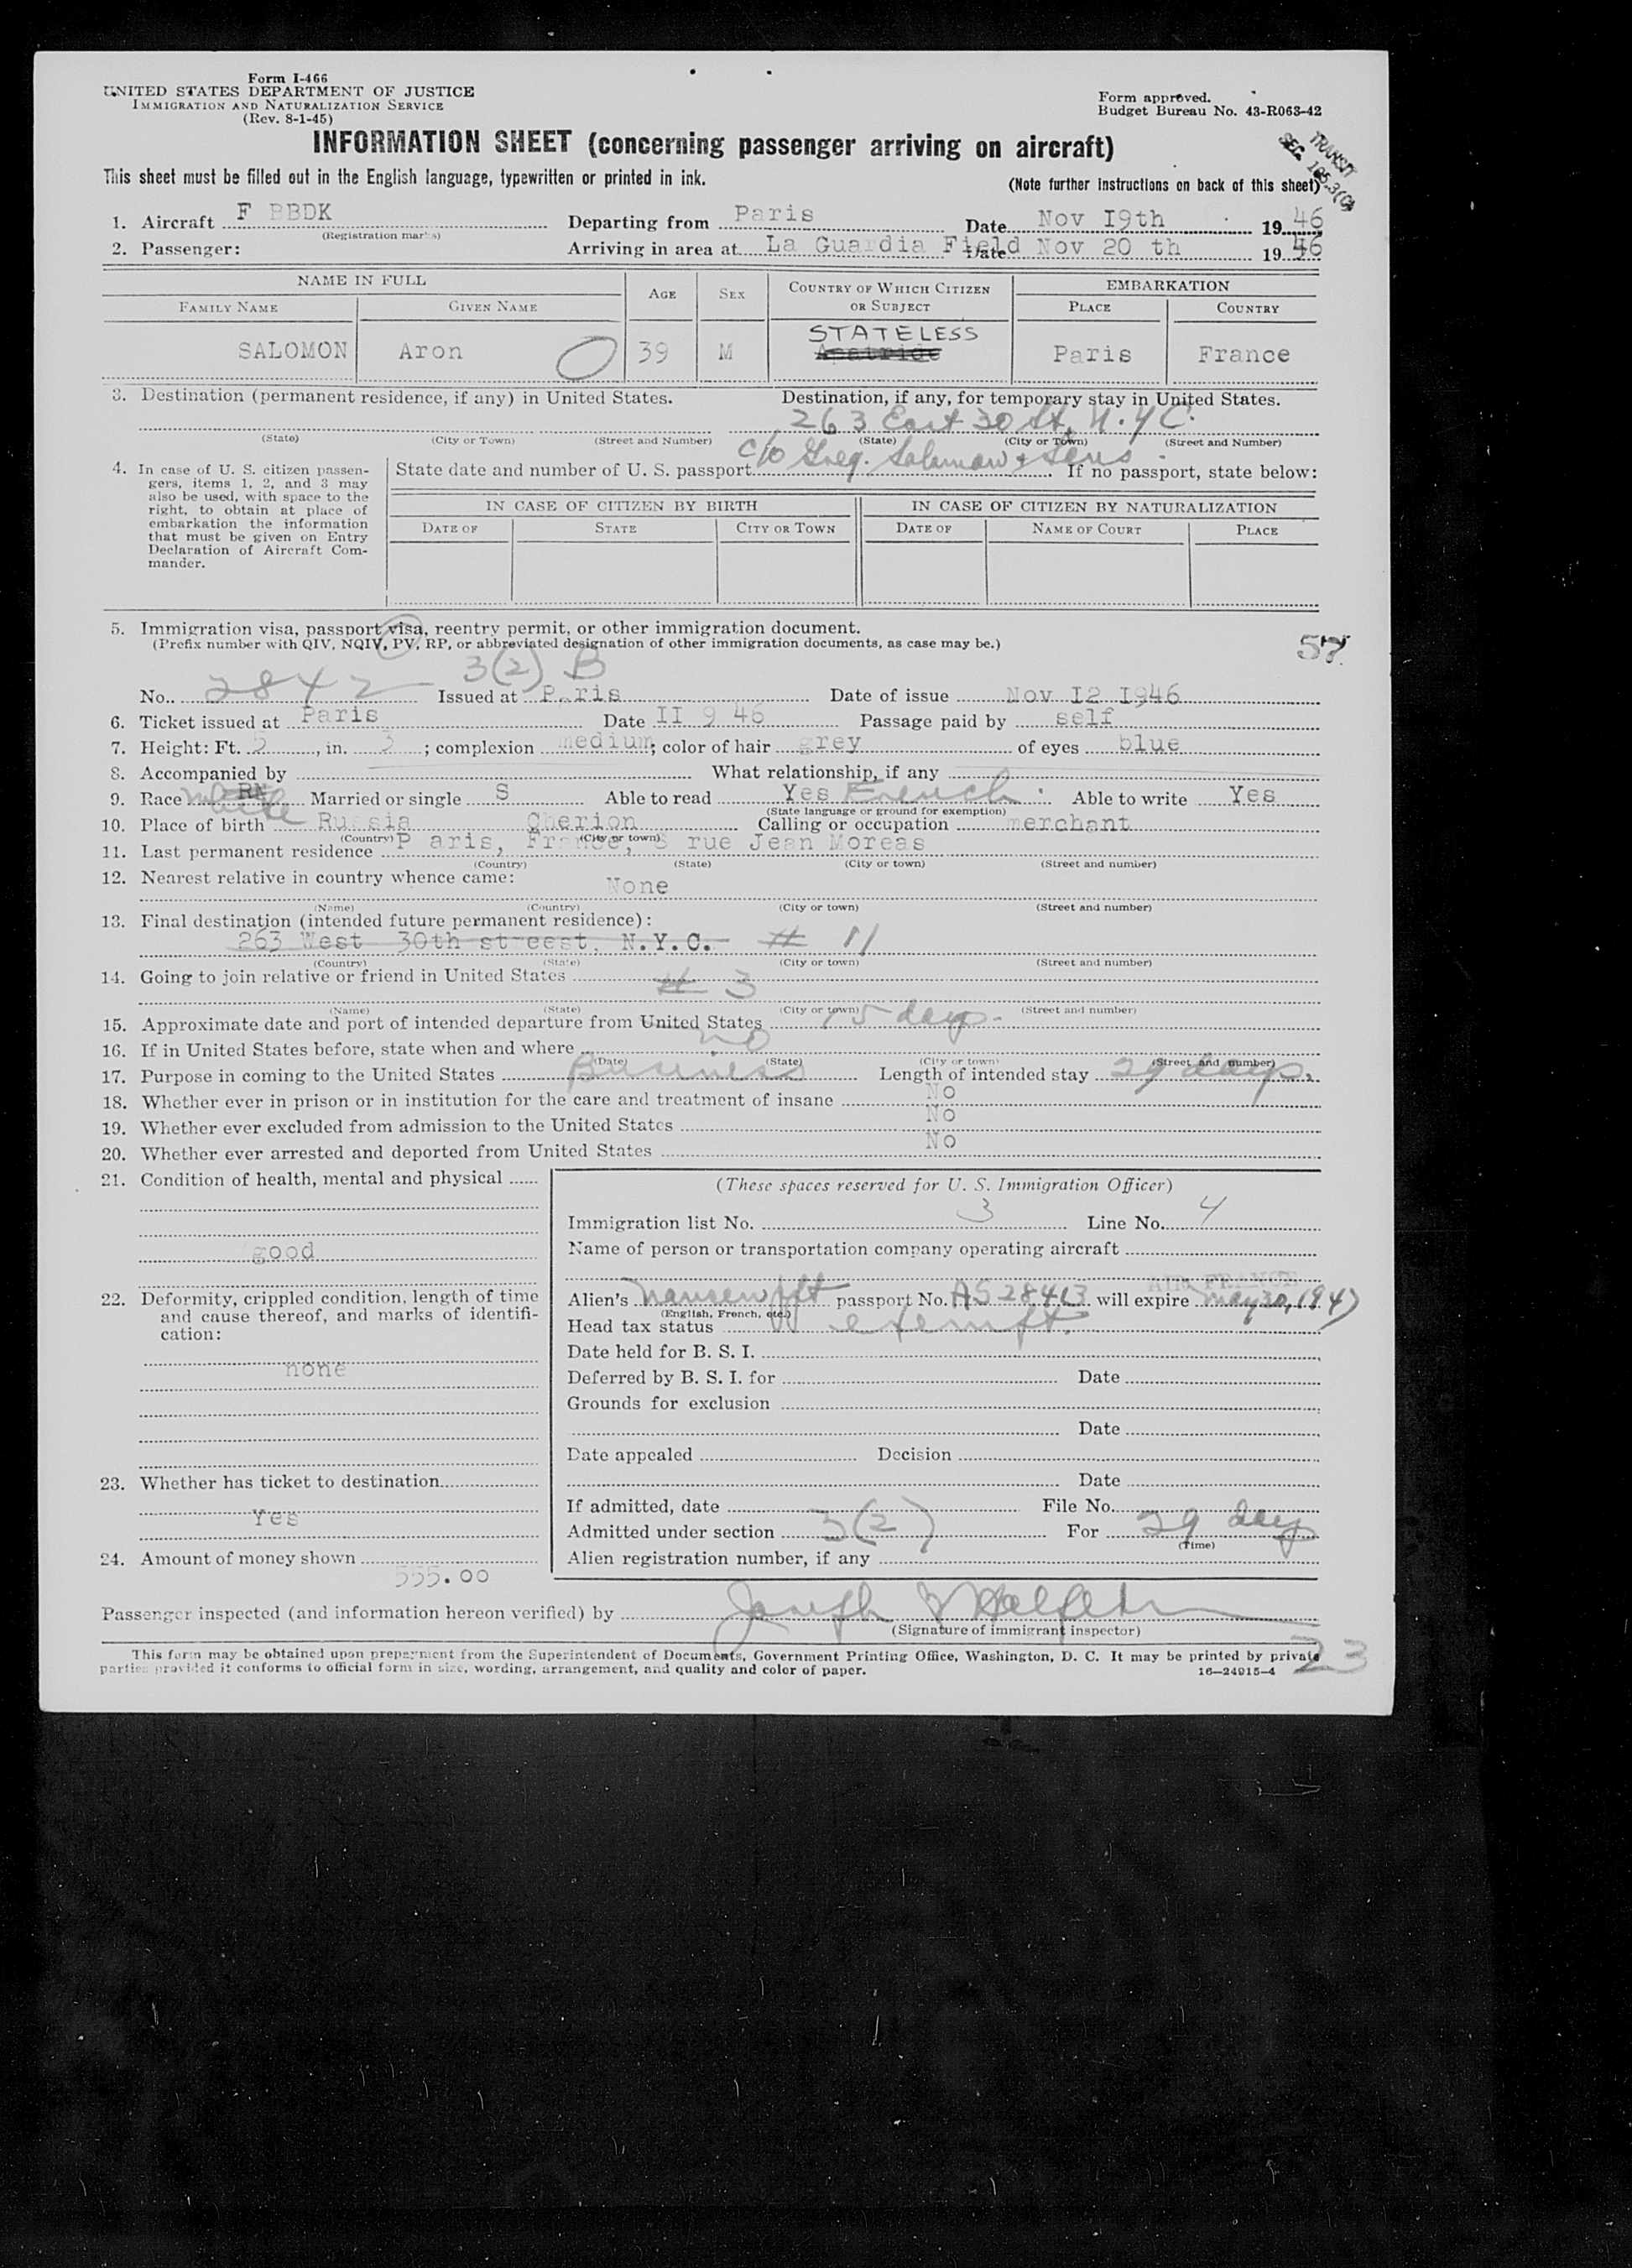 Form I-466
UNITED STATES DEPARTMENT OF JUSTICE
IMMIGRATION AND NATURALIZATION SERVICE
(Rev. 8-1-45)
Form approved.
Budget Bureau No. 43-R063-42
INFORMATION SHEET (concerning passenger arriving on aircraft)
TRANSIT
SEC 105.3(G)
This sheet must be filled out in the English language, typewritten or printed in ink.
(Note further instructions on back of this sheet)
1. Aircraft F BBDK Departing from Paris Date Nov I9th 1946
(Registration marks)
2. Passenger: Arriving in area at La Guardia Field Date Nov 20 th 1946
NAME IN FULL AGE SEX COUNTRY OF WHICH CITIZEN OR SUBJECT EMBARKATION
FAMILY NAME GIVEN NAME PLACE COUNTRY
STATELESS
SALOMON Aron 39 M Apatride Paris France
3. Destination (permanent residence, if any) in United States. Destination, if any, for temporary stay in United States.
263 East 30 St, N.Y.C.
(State) (City or Town) (Street and Number) (State) (City or Town) (Street and Number)
c/o Greg. Salomon & Sons
4. In case of U. S. citizen passengers, items 1, 2, and 3 may also be used, with space to the right, to obtain at place of embarkation the information that must be given on Entry Declaration of Aircraft Commander.
State date and number of U. S. passport If no passport, state below:
IN CASE OF CITIZEN BY BIRTH IN CASE OF CITIZEN BY NATURALIZATION
DATE OF STATE CITY OR TOWN DATE OF NAME OF COURT PLACE
5. Immigration visa, passport visa, reentry permit, or other immigration document.
(Prefix number with QIV, NQIV, PV, RP, or abbreviated designation of other immigration documents, as case may be.)
57
3(2) B
No. 2842 Issued at Paris Date of issue Nov I2 I946
6. Ticket issued at Paris Date II 9 46 Passage paid by self
7. Height: Ft. 5, in. 3; complexion medium; color of hair grey of eyes blue
8. Accompanied by What relationship, if any
9. Race white Married or single S Able to read Yes French Able to write Yes
(State language or ground for exemption)
10. Place of birth Russia Cherion Calling or occupation merchant
(Country) (City or town)
11. Last permanent residence P aris, France, 3 rue Jean Moreas
(Country) (State) (City or town) (Street and number)
12. Nearest relative in country whence came: None
(Name) (Country) (City or town) (Street and number)
13. Final destination (intended future permanent residence):
263 West 30th streest, N.Y.C. # 11
(Country) (State) (City or town) (Street and number)
14. Going to join relative or friend in United States # 3
(Name) (State) (City or town) (Street and number)
15. Approximate date and port of intended departure from United States 15 days
16. If in United States before, state when and where no
(Date) (State) (City or town) (Street and number)
17. Purpose in coming to the United States Business Length of intended stay 29 days.
18. Whether ever in prison or in institution for the care and treatment of insane No
19. Whether ever excluded from admission to the United States No
20. Whether ever arrested and deported from United States No
21. Condition of health, mental and physical
good
22. Deformity, crippled condition, length of time and cause thereof, and marks of identification:
none
23. Whether has ticket to destination
Yes
24. Amount of money shown
555.00
(These spaces reserved for U. S. Immigration Officer)
Immigration list No. 3 Line No. 4
Name of person or transportation company operating aircraft
AIR FRANCE
Alien's nansen ppt passport No. AS28413 will expire may 20, 1947
(English, French, etc.)
Head tax status exempt.
Date held for B. S. I.
Deferred by B. S. I. for Date
Grounds for exclusion
Date
Date appealed Decision
Date
If admitted, date File No.
Admitted under section 3(2) For 29 days
(Time)
Alien registration number, if any
Passenger inspected (and information hereon verified) by Joseph
(Signature of immigrant inspector)
This form may be obtained upon prepayment from the Superintendent of Documents, Government Printing Office, Washington, D. C. It may be printed by private
parties provided it conforms to official form in size, wording, arrangement, and quality and color of paper.
16—24915-4
23